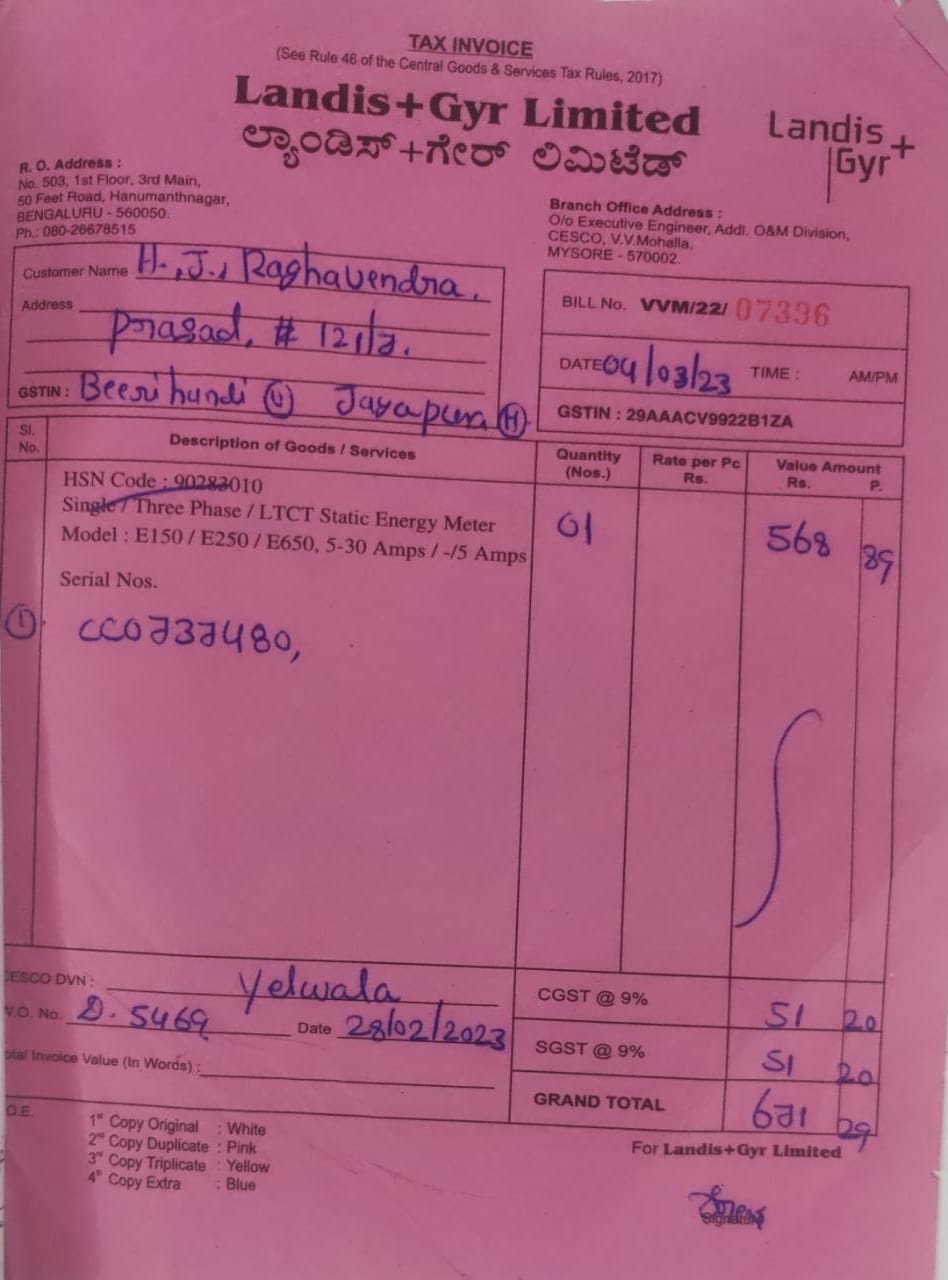 TAX INVOICE
(See Rule 46 of the Central Goods & Services Tax Rules, 2017)
Landis+Gyr Limited
ಲ್ಯಾಂಡಿಸ್+ಗೇರ್ ಲಿಮಿಟೆಡ್
Landis+
Gyr
R. O. Address :
No. 503, 1st Floor, 3rd Main,
50 Feet Road, Hanumanthnagar,
BENGALURU - 560050.
Ph.: 080-26678515
Branch Office Address :
O/o Executive Engineer, Addl. O&M Division,
CESCO, V.V.Mohalla,
MYSORE - 570002.
Customer Name H.,J., Raghavendra.
Address
Prasad, # 121/7.
GSTIN : Beerihundi (V) Jayapura (H).
BILL No. VVM/22/ 07396
DATE 04/03/23 TIME : AM/PM
GSTIN : 29AAACV9922B1ZA
Sl. No. Description of Goods / Services Quantity (Nos.) Rate per Pc Rs. Value Amount Rs. P.
HSN Code : 90283010
Single / Three Phase / LTCT Static Energy Meter 01 568 89
Model : E150 / E250 / E650, 5-30 Amps / -/5 Amps
Serial Nos.
(1). CC0737480,
CESCO DVN : Yelwala
W.O. No. D. 5469 Date 28/02/2023
Total Invoice Value (In Words) :
CGST @ 9% 51 20
SGST @ 9% 51 20
GRAND TOTAL 671 29
O.E.
1st Copy Original : White
2nd Copy Duplicate : Pink
3rd Copy Triplicate : Yellow
4th Copy Extra : Blue
For Landis+Gyr Limited
Signature